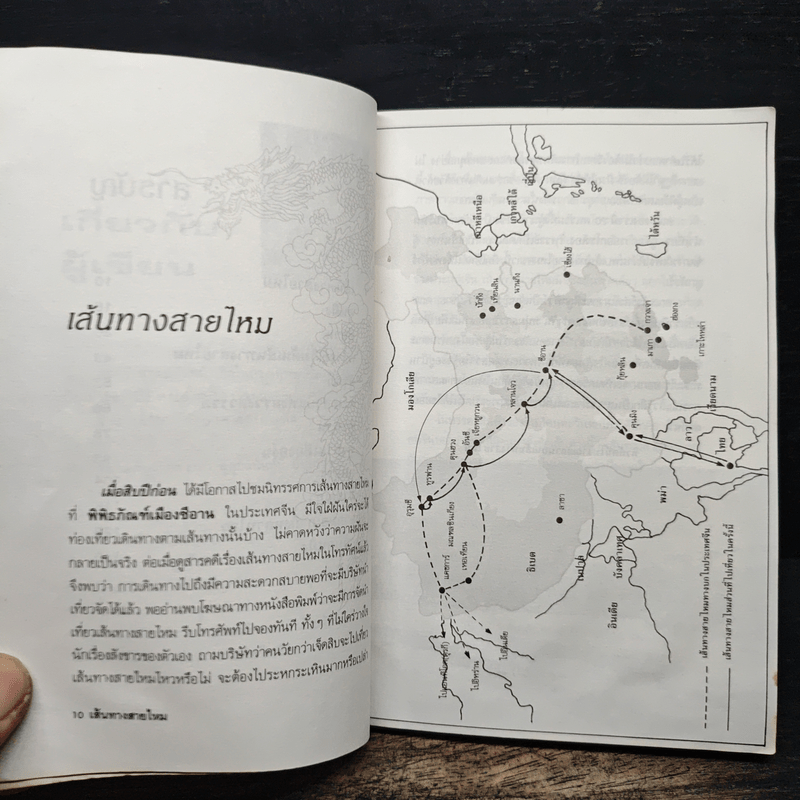 เส้นทางสายไหม
เมื่อสิบปีก่อน ได้มีโอกาสไปชมนิทรรศการเส้นทางสายไหม
ที่ พิพิธภัณฑ์เมืองซีอาน ในประเทศจีน มีใจใฝ่ฝันใคร่จะได้
ท่องเที่ยวเดินทางตามเส้นทางนั้นบ้าง ไม่คาดหวังว่าความฝันจะ
กลายเป็นจริง ต่อเมื่อดูสารคดีเรื่องเส้นทางสายไหมในโทรทัศน์แล้ว
จึงพบว่า การเดินทางไปถึงมีความสะดวกสบายพอที่จะมีบริษัทนำ
เที่ยวจัดได้แล้ว พออ่านพบโฆษณาทางหนังสือพิมพ์ว่าจะมีการจัดนำ
เที่ยวเส้นทางสายไหม รีบโทรศัพท์ไปจองทันที ทั้งๆ ที่ไม่ใคร่วางใจ
นักเรื่องสังขารของตัวเอง ถามบริษัทว่าคนวัยกว่าเจ็ดสิบจะไปเที่ยว
เส้นทางสายไหมไหวหรือไม่ จะต้องไประหกระเหินมากหรือเปล่า
10 เส้นทางสายไหม
มองโกเลีย
เกาหลีเหนือ
เกาหลีใต้
ญี่ปุ่น
ไต้หวัน
ปักกิ่ง
เทียนสิน
นานกิง
เซี่ยงไฮ้
ซีอาน
หลานโจว
เจียหยู่กวน
อันซี
ตุนฮวง
ทูรฟาน
อุรุมชี
มณฑลซินเกียง
แคชการ์
เหอเถียน
ลาซา
ธิเบต
กวางเจา
มาเก๊า
ฮ่องกง
กุ้ยหลิน
คุนมิง
เกาะไหหลำ
เวียดนาม
ลาว
ไทย
พม่า
บังคลาเทศ
เนปาล
อินเดีย
ไปอิหร่าน
ไปอินเดีย
เส้นทางสายไหมทางบกในประเทศจีน
เส้นทางสายไหมส่วนที่ไปเที่ยวในครั้งนี้